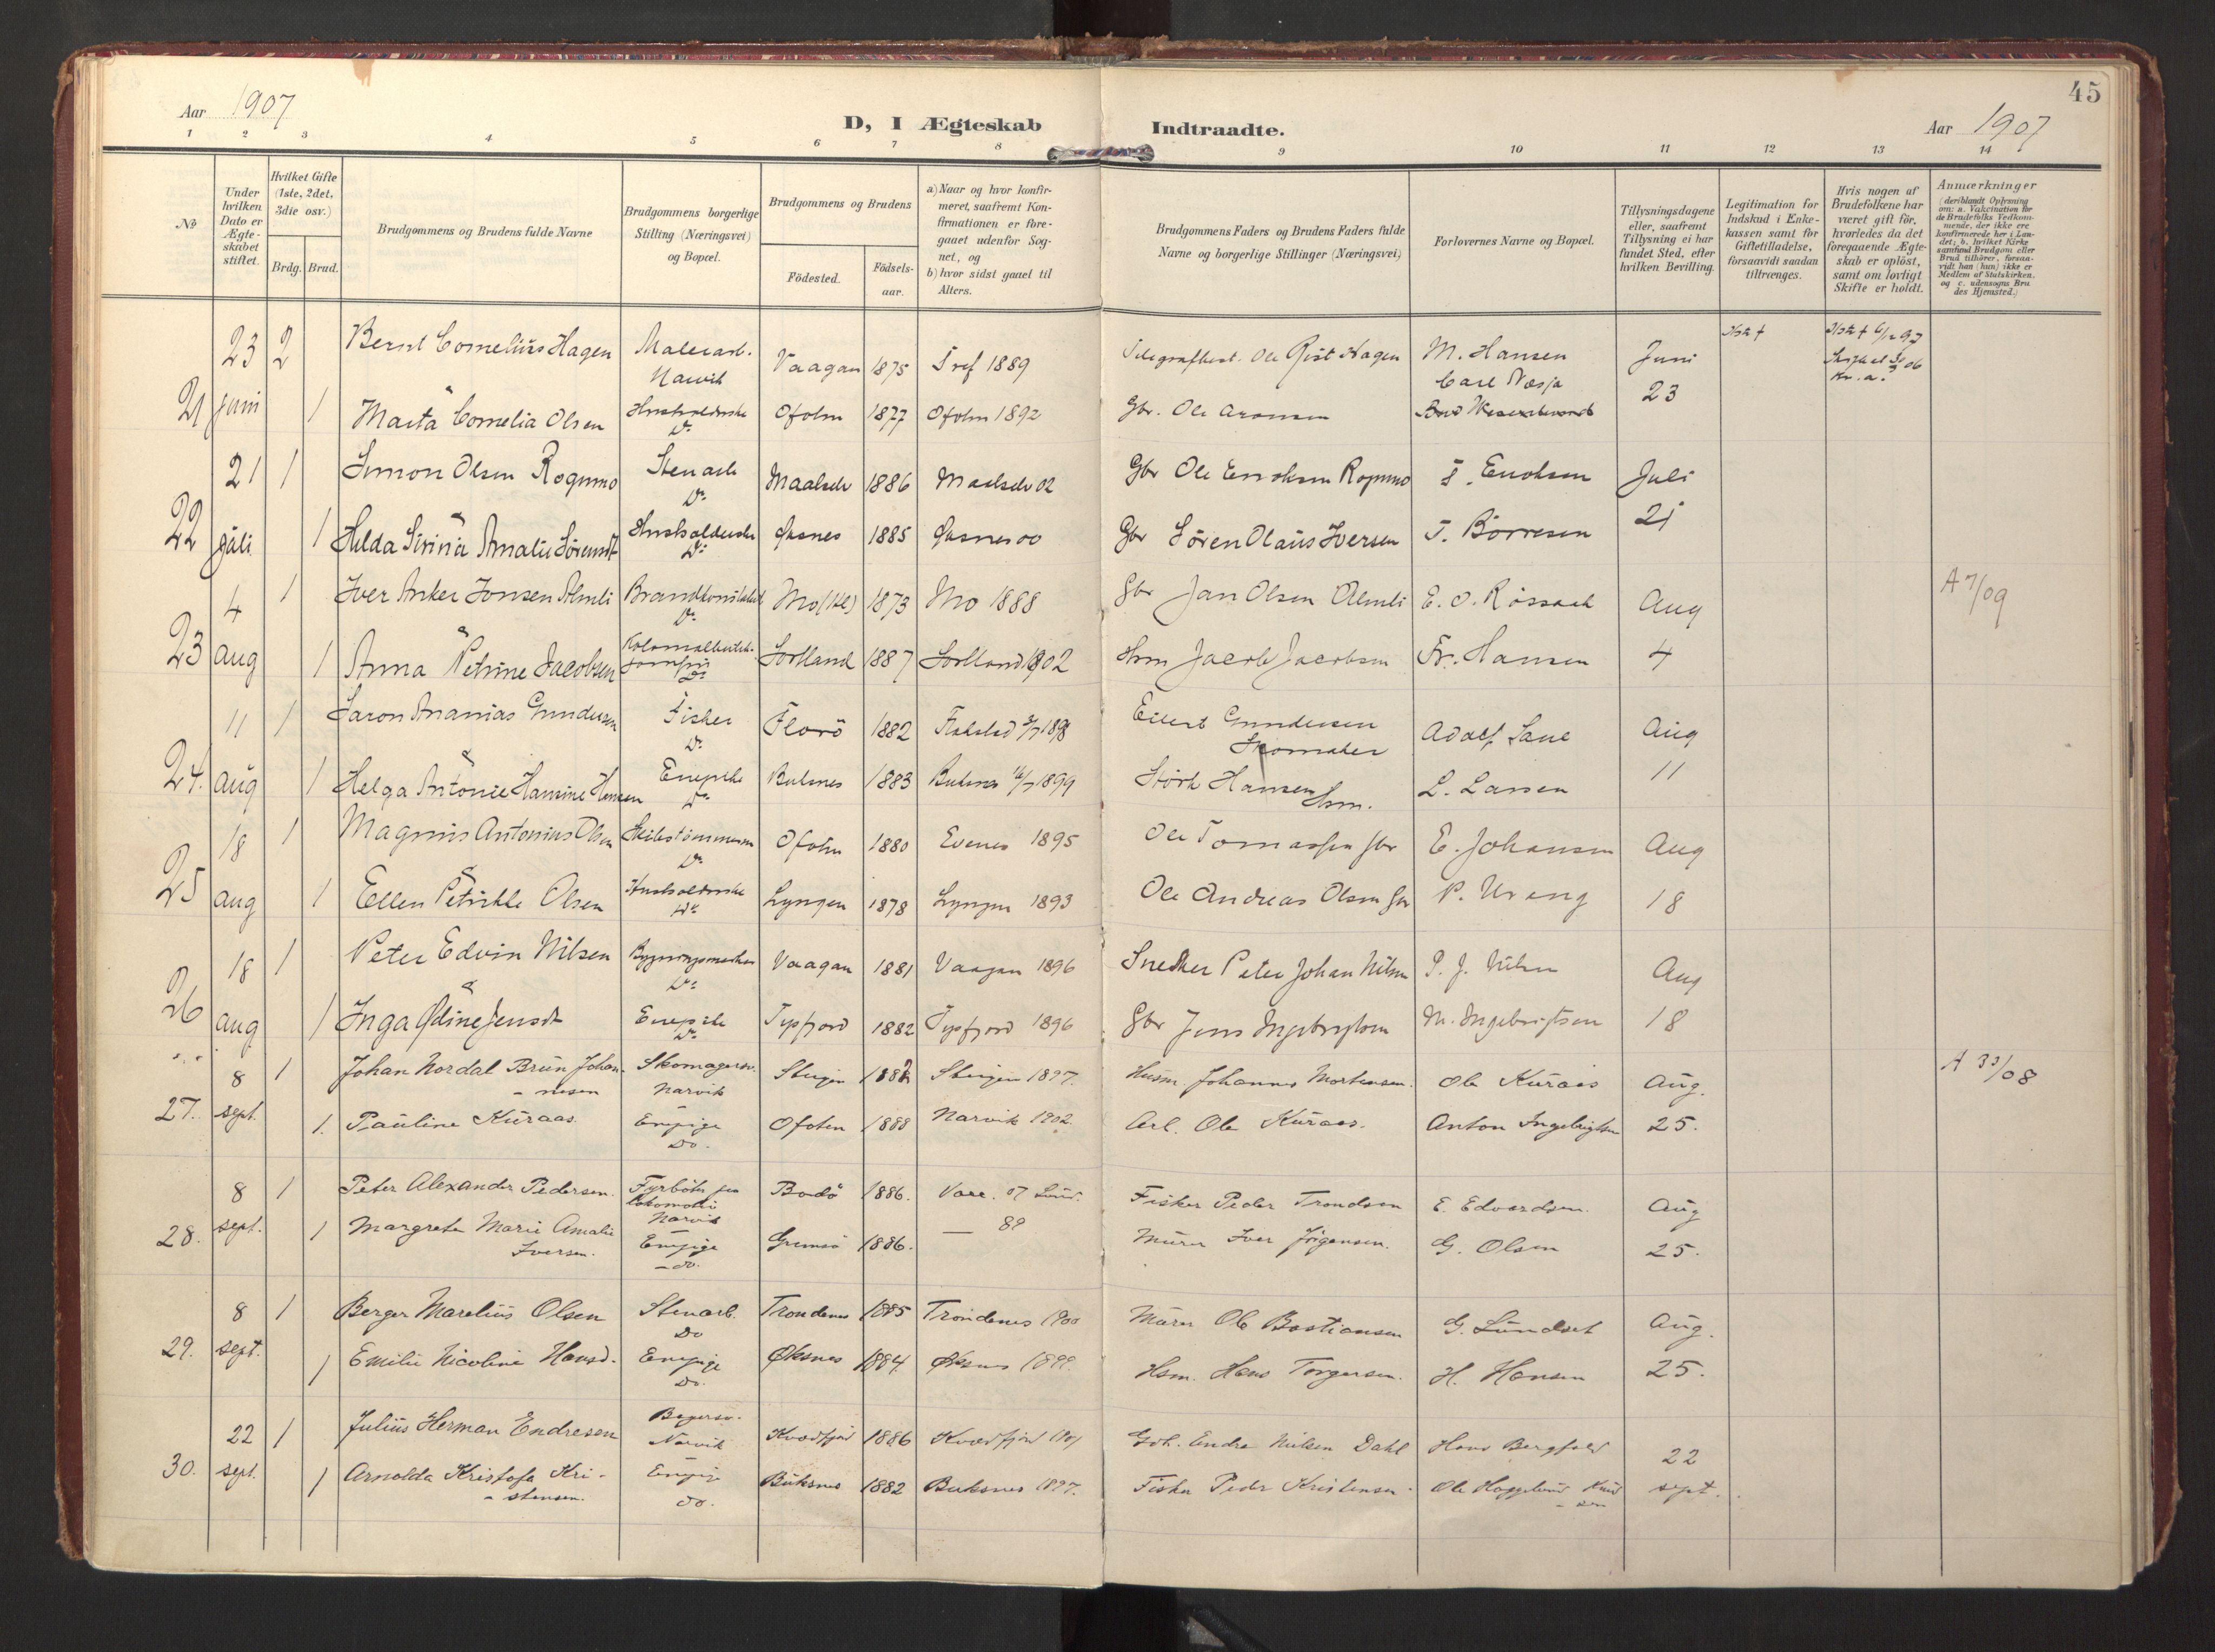 45
Aar 1907
D, I Ægteskab Indtraadte.
Aar 1907
1 2 3 4 5 6 7 8 9 10 11 12 13 14
No
Under hvilken Dato er Ægteskabet stiftet.
Hvilket Gifte (1ste, 2det, 3die osv.)
Brdg. Brud.
Brudgommens og Brudens fulde Navne
Brudgommens borgerlige Stilling (Næringsvei) og Bopæl.
Brudgommens og Brudens
Fødested.
Fødsels-aar.
a) Naar og hvor konfirmeret, saafremt Konfirmationen er foregaaet udenfor Sognet, og
b) hvor sidst gaaet til Alters.
Brudgommens Faders og Brudens Faders fulde Navne og borgerlige Stillinger (Næringsvei)
Forlovernes Navne og Bopæl.
Tillysningsdagene eller, saafremt Tillysning ei har fundet Sted, efter hvilken Bevilling.
Legitimation for Indskud i Enkekassen samt for Giftetilladelse, forsaavidt saadan tiltrænges.
Hvis nogen af Brudefolkene har været gift før, hvorledes da det foregaaende Ægteskab er opløst, samt om lovligt Skifte er holdt.
Anmærkninger (deriblandt Oplysning om: a. Vakcination for de Brudefolks Vedkommende, der ikke ere konfirmerede her i Landet; b. hvilket Kirkesamfund Brudgom eller Brud tilhører, forsaavidt han (hun) ikke er Medlem af Statskirken, og c. udensogns Brudes Hjemsted.)
21 23 juni 2 Bernt Cornelius Hagen Malerarb. Narvik Vaagan 1875 1889 Ole Rist Hagen M. Hansen Carl Næsja Juni 23
1 Marta Cornelia Olsen Ofoten 1877 Ofoten 1892 Gbr. Ole Aronsen
22 21 juli 1 Simon Olsen Rognmo Stenarb Do Maalselv 1886 Maalselv 02 Gbr Ole Rognmo Juli 21
1 Hilda Sirina Amalie Sörensdt Do Øksnes 1885 Øksnes 00 Gbr Sören Olaus Iversen T. Börresen
23 4 aug 1 Iver Anker Jonsen Almli Do 1873 Mo 1888 Gbr Jan Olsen Almli E. O. Rössaak Aug 4 A 7/09
1 Anna Petrine Jacobsen Do Sortland 1887 Sortland 1902 Hsm Jacob Jacobsen Fr. Hansen
24. 11 aug 1 Saron Ananias Gundersen Fisker Do Florö 1882 Eilert Gundersen Skomaker Adolf Lane Aug 11
1 Helga Antonie Hansine Hansen Do 1883 1899 Störk Hansen Hsm. L. Larsen
25 18 aug 1 Magnus Antonius Olsen Do Ofoten 1880 Evenes 1895 Ole Tomassen Gbr E. Johansen Aug 18
1 Ellen Petrikke Olsen Do Lyngen 1878 Lyngen 1893 Ole Andreas Olsen Gbr P. Urang
26 18 aug 1 Peter Edvin Nilsen Do Vaagan 1881 Vaagan 1896 Snedker Peter Johan Nilsen P. J. Nilsen Aug 18
1 Inga Ødine Jensdt Do Tysfjord 1882 Tysfjord 1896 Gbr Jens Ingebrigtsen M. Ingebrigtsen
27. 8 sept. 1 Johan Nordal Brun Johannesen Skomagersv. Narvik Steigen 1882 Steigen 1897. Husm Johannes Mortensen. Ole Kuraas Aug. 25. A 33/08
1. Pauline Kuraas. Enepige Do. Ofoten 1888 Narvik 1902. Arb. Ole Kuraas. Anton Ingebrigtsen
28. 8 sept. 1 Peter Alexander Pedersen. Narvik Bodö 1886. Fisker Peder Trondsen E. Edvardsen. Aug 25.
1 Margrete Marie Amalie Iversen. Enepige do. Gimsö 1886. Murer Iver Jörgensen. G. Olsen
29. 8 sept. 1 Berger Marelius Olsen Stenarb. Do Trondenes 1885 Trondenes 1900 Murer Ole Bastiansen G. Lundset Aug. 25.
1 Emilie Nicoline Hansd. Enepige Do. Øksnes 1884 Øksnes 1899. Hsm. Hans Torgersen. H. Hansen
30. 22 sept. 1 Julius Herman Endresen Bagersv. Narvik Kvædfjord 1886 Kvædfjord 1901 Endre Nilsen Dahl Hans Bergfald 22 sept.
1 Arnolda Kristofa Kristensen. Enepige do. Buksnes 1882 Buksnes 1897. Fisker Peder Kristensen